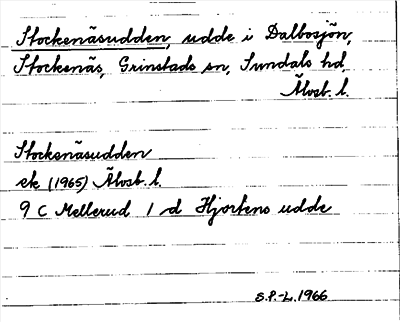 Stockenäsudden, udde i Dalbosjön,
Stockenäs, Grinstads sn, Sundals hd,
Älvsb. l.
Stockenäsudden
ek (1965) Älvsb. l.
9 C Mellerud 1 d Hjortens udde
S.P.-L. 1966